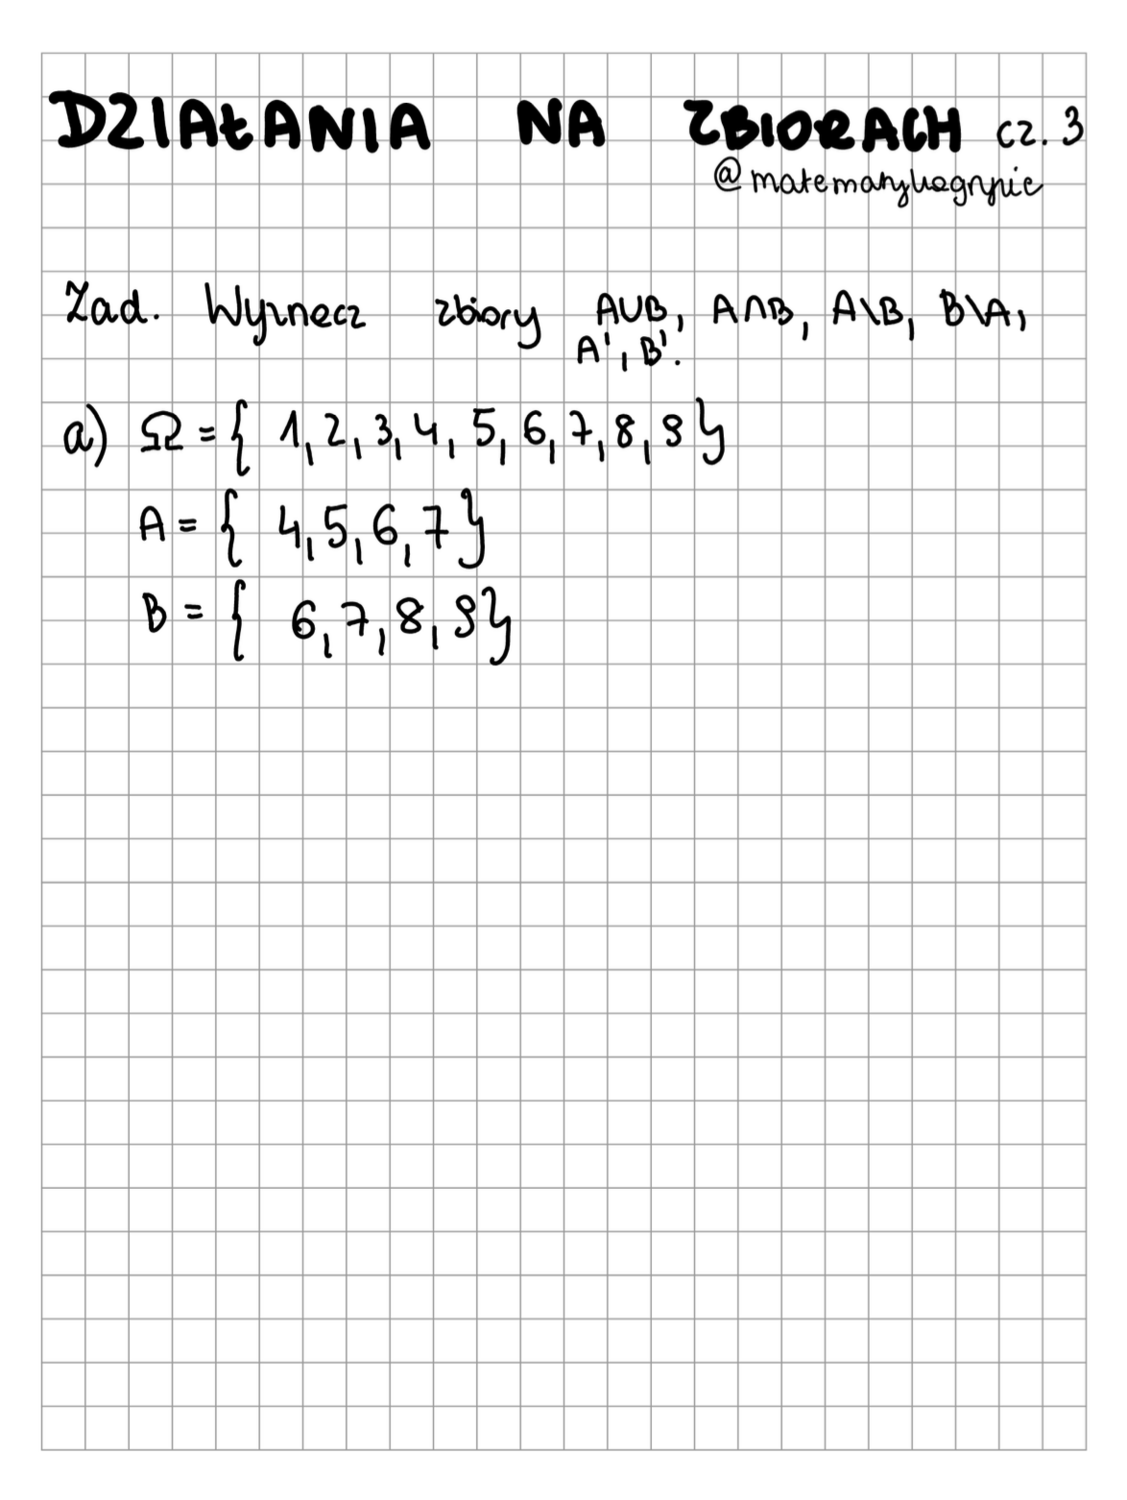 DZIAŁANIA NA ZBIORACH cz. 3
@matematykagrypie
Zad. Wyznacz zbiory A∪B, A∩B, A\B, B\A,
A', B'.
a) Ω = { 1, 2, 3, 4, 5, 6, 7, 8, 9 }
A = { 4, 5, 6, 7 }
B = { 6, 7, 8, 9 }